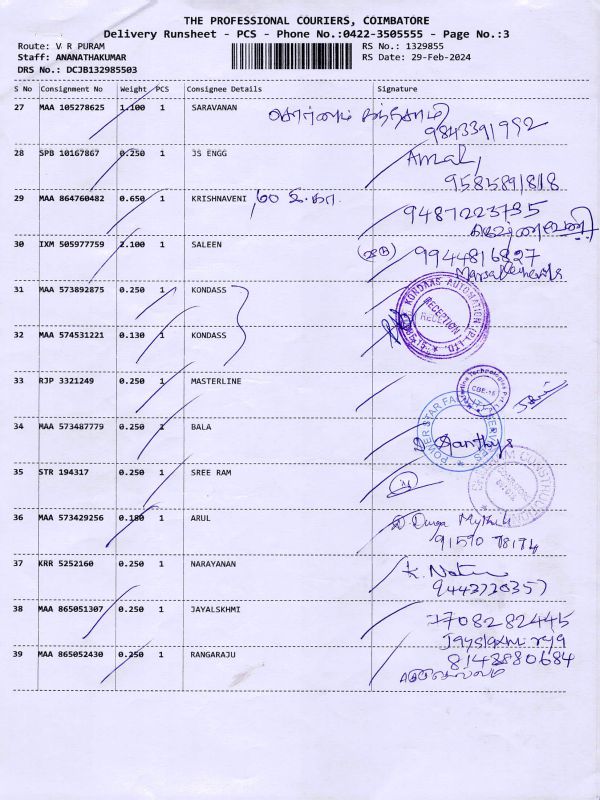 THE PROFESSIONAL COURIERS, COIMBATORE
Delivery Runsheet - PCS - Phone No.:0422-3505555 - Page No.:3
Route: V R PURAM
RS No.: 1329855
Staff: ANANATHAKUMAR
RS Date: 29-Feb-2024
DRS No.: DCJB132985503
S No Consignment No Weight PCS Consignee Details Signature
27 MAA 105278625 1.100 1 SARAVANAN
9843391992
28 SPB 10167867 0.250 1 JS ENGG Amal
9585891818
29 MAA 864760482 0.650 1 KRISHNAVENI 9487223735
30 IXM 505977759 2.100 1 SALEEN 9944816827
31 MAA 573892875 0.250 1 KONDASS
KONDAAS AUTOMATION (P) LTD.
RECEPTION
32 MAA 574531221 0.130 1 KONDASS
33 RJP 3321249 0.250 1 MASTERLINE
34 MAA 573487779 0.250 1 BALA
POWER STAR
35 STR 194317 0.250 1 SREE RAM
36 MAA 573429256 0.180 1 ARUL D. Durga Mythili
91590 78174
37 KRR 5252160 0.250 1 NARAYANAN
9442720357
38 MAA 865051307 0.250 1 JAYALSKHMI 7708282445
39 MAA 865052430 0.250 1 RANGARAJU 8148880684